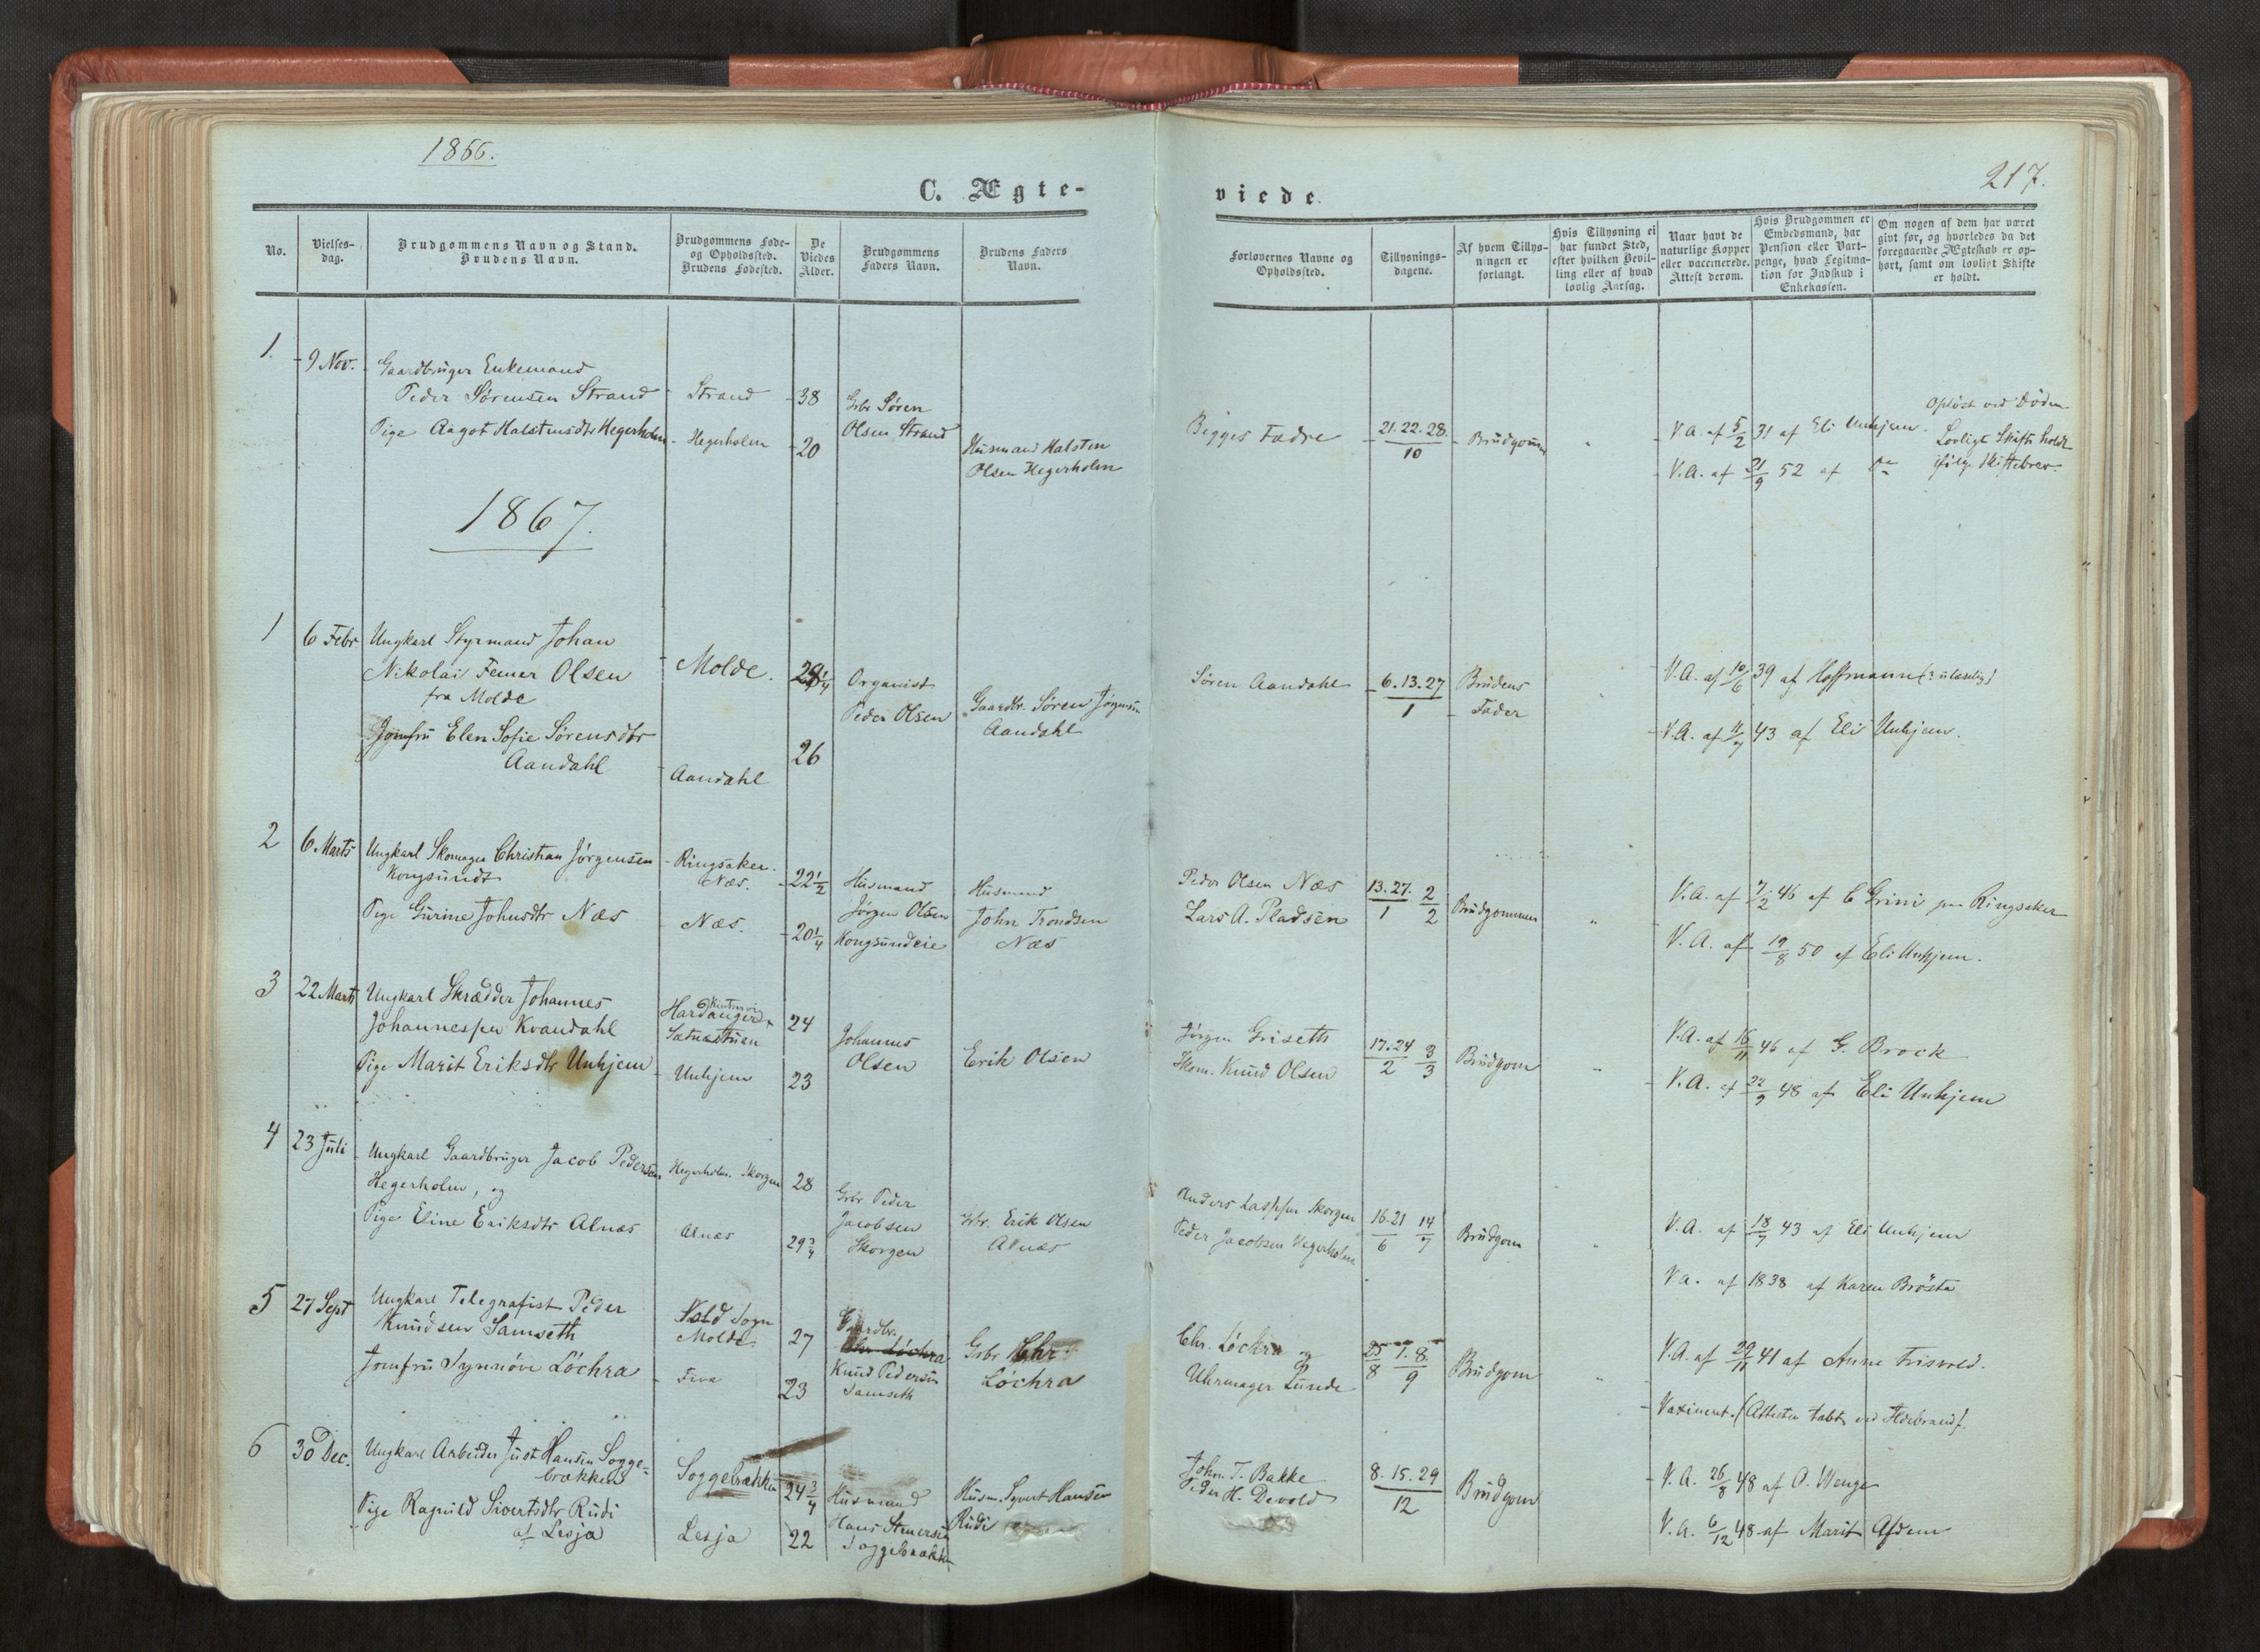 1866.
C. Ægte-
viede.
217.
No.
Vielses-
dag.
Brudgommens Navn og Stand.
Brudens Navn.
Brudgommens Føde-
og Opholdssted.
Brudens Fødested.
De
Viedes
Alder.
Brudgommens
Faders Navn.
Brudens Faders
Navn.
Forlovernes Navne og
Opholdssted.
Tillysnings-
dagene.
Af hvem Tillys-
ningen er
forlangt.
Hvis Tillysning ei
har fundet Sted,
efter hvilken Bevil-
ling eller af hvad
lovlig Aarsag.
Naar havt de
naturlige Kopper
eller vaccinerede.
Attest derom.
Hvis Brudgommen er
Embedsmand, har
Pension eller Vart-
penge, hvad Legitima-
tion for Indskud i
Enkekassen.
Om nogen af dem har været
givt før, og hvorledes da det
foregaaende Ægteskab er op-
hørt, samt om lovligt Skifte
er holdt.
1.
9 Nov.
Gaardbruger Enkemand
Peder Sørensen Strand
Pige Aagot Halstensdtr Hegerholm
Strand
Hegerholm
38
20
Gbr Søren
Olsen Strand
Husmand Halsten
Olsen Hegerholm
Begges Fædre
21.22.28.
10
Brudgommen
"
V.A. af 5/2 31 af Eli Unhjem.
V.A. af 21/9 52 af Do
Opløst ved Døden.
Lovligt Skifte holdt
ifølge Skiftebrev.
1867.
1
6 Febr
Ungkarl Styrmand Johan
Nikolai Femer Olsen
fra Molde
Jomfru Elen Sofie Sørensdtr
Aandahl
Molde.
Aandahl
26
Organist
Peder Olsen
Gaardbr. Søren Jørgensen
Aandahl
Søren Aandahl
6.13.27
1
Brudens
Fader
V.A. af 10/6 39 af Hoffmann (: ulæselig)
V.A. af 11/7 43 af Eli Unhjem.
2
6 Marts
Ungkarl Skomager Christian Jørgensen
Kongsundt
Pige Gurine Johnsdtr Næs
Ringsaker.
Næs.
Næs.
22 1/2
20 1/4
Husmand
Jørgen Olsen
Kongsundeie
Husmand
John Trondsen
Næs
Peder Olsen Næs
Lars A. Pladsen
13.27. 2
1 2
Brudgommen
"
V.A. af 7/2 46 af C Grini paa Ringsaker
V.A. af 19/8 50 af Eli Unhjem.
3
22 Marts
Ungkarl Skrædder Johannes
Johannessen Kvandahl
Pige Marit Eriksdtr Unhjem
Hardanger
Unhjem
24
23
Johannes
Olsen
Erik Olsen
Jørgen Griseth
Skom. Knud Olsen
17.24 3
2 3
Brudgom
"
V.A. af 16/11 46 af G. Brock
V.A. af 22/9 48 af Eli Unhjem
4
23 Juli
Ungkarl Gaardbruger Jacob Pedersen
Hegerholm, og
Pige Eline Eriksdtr Alnæs
Hegerholm. Skorgen
Alnæs
28
29 3/4
Gbr Peder
Jacobsen
Skorgen
Gbr. Erik Olsen
Alnæs
Anders Lassesen Skorgen
Peder Jacobsen Hegerholm
16.21 14
6 7
Brudgom
"
V.A. af 18/7 43 af Eli Unhjem
V.A. af 1838 af Karen Brøste
5
27 Sept
Ungkarl Telegrafist Peder
Knudsen Samseth
Jomfru Synnöve Löchra
Vold Sogn
Molde
Fiva
27
23
Gaardbr.
Knud Pedersen
Samseth
Gbr Chr.
Löchra
Chr. Löchra og
Uhrmager Lunde
25 1.8.
8 9
Brudgom
"
V.A. af 29/11 41 af Anne Frisvold.
Vaxineret. (Attesten tabt ved Ildebrand).
6
30 Dec.
Ungkarl Arbeider Just Hansen Sogge-
brækken
Pige Ragnild Sivertsdtr Rudi
af Lesja
Soggebrækken
Lesja
24 3/4
22
Husmand
Hans Steversen
Soggebrækken
Husm. Syvert Hansen
Rudi
John T. Bakke
Peder H. Devold
8.15.29
12
Brudgom
V.A. 26/8 48 af O. Wenge
V.A. 6/12 48 af Marit Afdem